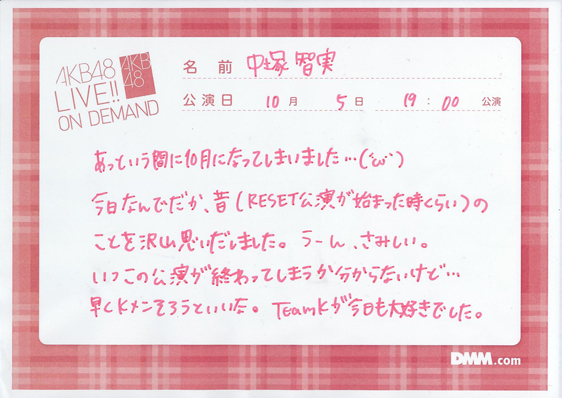 AKB48
LIVE!!
ON DEMAND
AKB
48
名前 中塚智実
公演日 10月 5日 19:00 公演
あっという間に10月になってしまいました…(´ω`)
今日なんでだか、昔(RESET公演が始まった時くらい)の
ことを沢山思いだしました。うーん、さみしい。
いつこの公演が終わってしまうか分からないけど…
早くKメンそろうといいな。TeamKが今日も大好きでした。
DMM.com